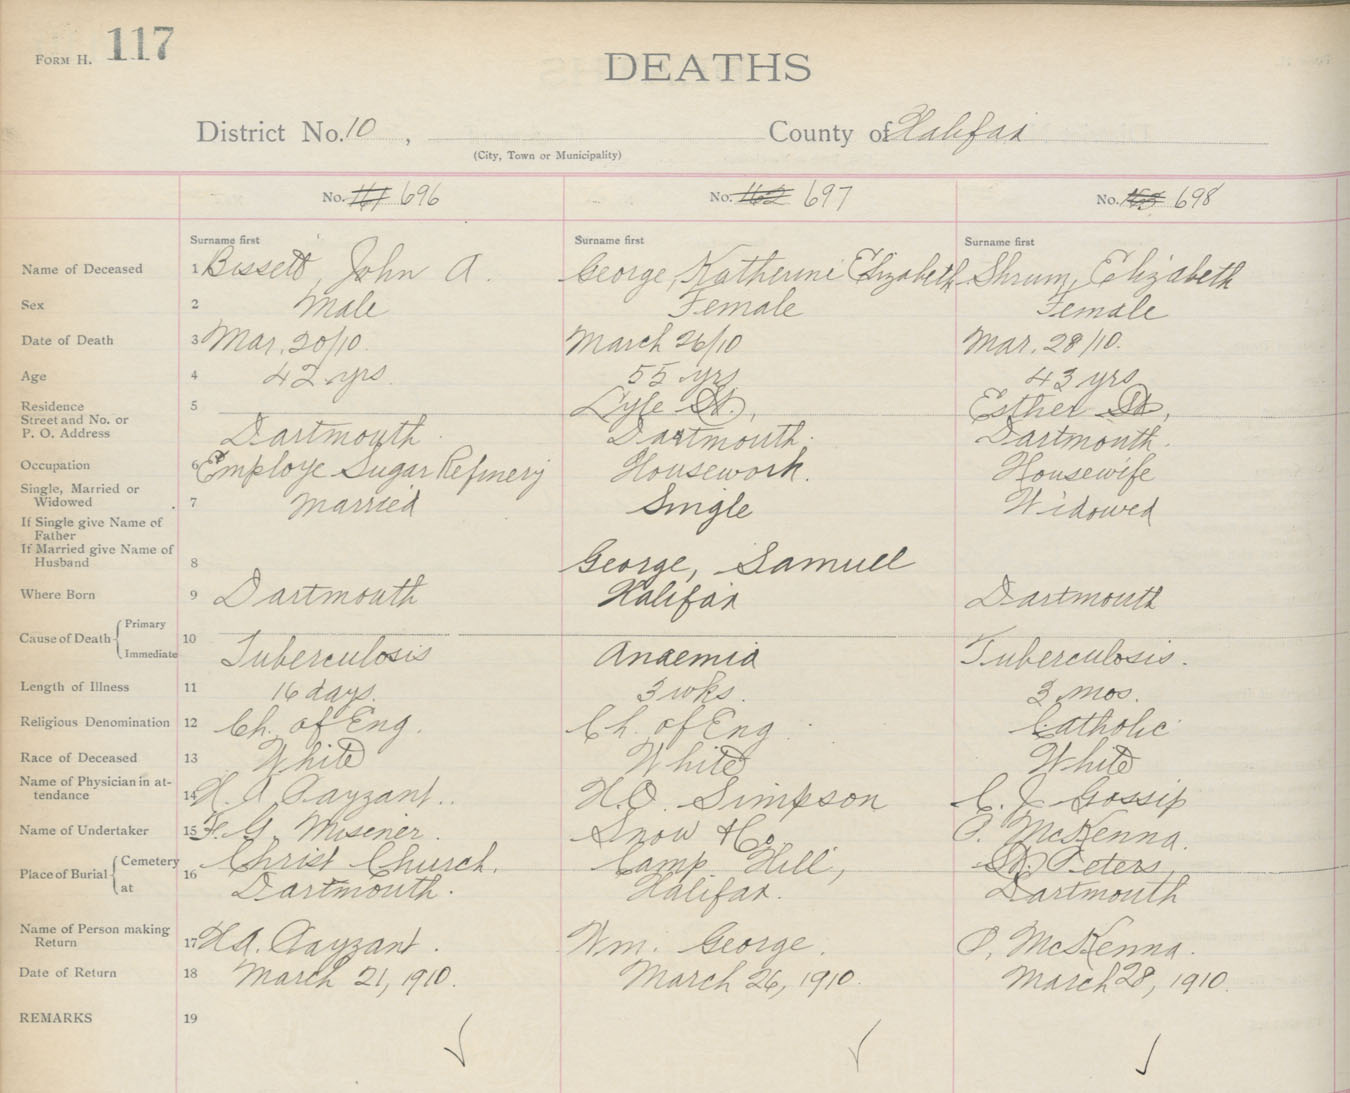 FORM H. 117
DEATHS
District No. 10, County of Halifax
(City, Town or Municipality)
No. 161 696 No. 162 697 No. 163 698
Surname first Surname first Surname first
Name of Deceased 1 Bissett, John A. George, Katherine Elizabeth Shrum, Elizabeth
Sex 2 Male Female Female
Date of Death 3 Mar. 20/10. March 26/10 Mar. 28/10.
Age 4 42 yrs. 55 yrs 43 yrs
Residence 5 Lyle St., Esther St,
Street and No. or
P. O. Address Dartmouth. Dartmouth. Dartmouth.
Occupation 6 Employe Sugar Refinery Housework. Housewife
Single, Married or
Widowed 7 Married Single Widowed
If Single give Name of
Father
If Married give Name of
Husband 8 George, Samuel
Where Born 9 Dartmouth Halifax Dartmouth
Cause of Death Primary
Immediate 10 Tuberculosis Anaemia Tuberculosis.
Length of Illness 11 16 days. 3 wks. 3 mos.
Religious Denomination 12 Ch. of Eng. Ch. of Eng. Catholic
Race of Deceased 13 White White White
Name of Physician in at-
tendance 14 H. A Payzant.. H.O. Simpson C. J Gossip
Name of Undertaker 15 F. G. Misener. Snow & Co. P. McKenna.
Place of Burial Cemetery 16 Christ Church. Camp Hill, St. Peters,
at Dartmouth. Halifax. Dartmouth
Name of Person making
Return 17 H.A. Payzant. Wm. George. P. McKenna.
Date of Return 18 March 21, 1910. March 26, 1910. March 28, 1910.
REMARKS 19